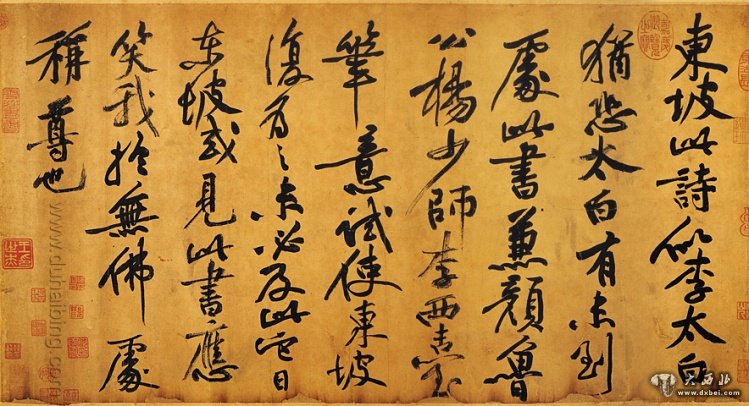 東坡此詩似李太白
猶恐太白有未到
處此書兼顏魯
公楊少師李西臺
筆意試使東坡
復為之未必及此它日
東坡或見此書應
笑我於無佛處
稱尊也
www.duhaibing.com
大西北
www.dxbei.com